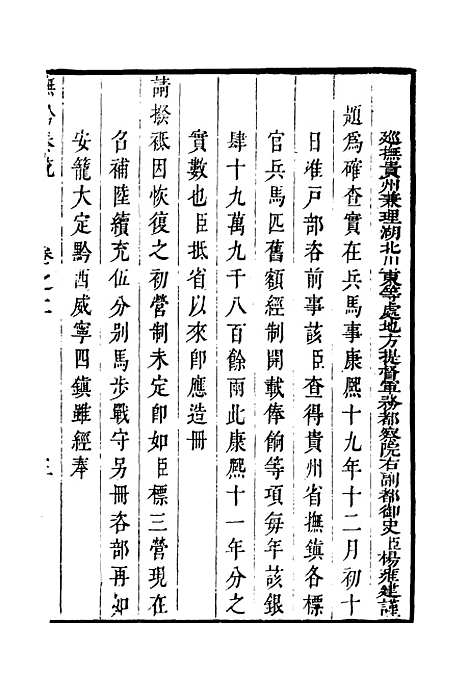 巡撫貴州兼理湖北川東等處地方提督軍務都察院右副都御史臣楊雍建謹
題爲確查實在兵馬事康熙十九年十二月初十
日准戶部咨前事該臣查得貴州省撫鎮各標
官兵馬匹舊額經制開載俸餉等項每年該銀
肆十九萬九千八百餘兩此康熙十一年分之
實數也臣抵省以來卽應造冊
請撥祗因恢復之初營制未定卽如臣標三營現在
召補陸續充伍分别馬步戰守另冊咨部再如
安籠大定黔西威寧四鎮雖經奉
撫黔奏疏
卷之二
三